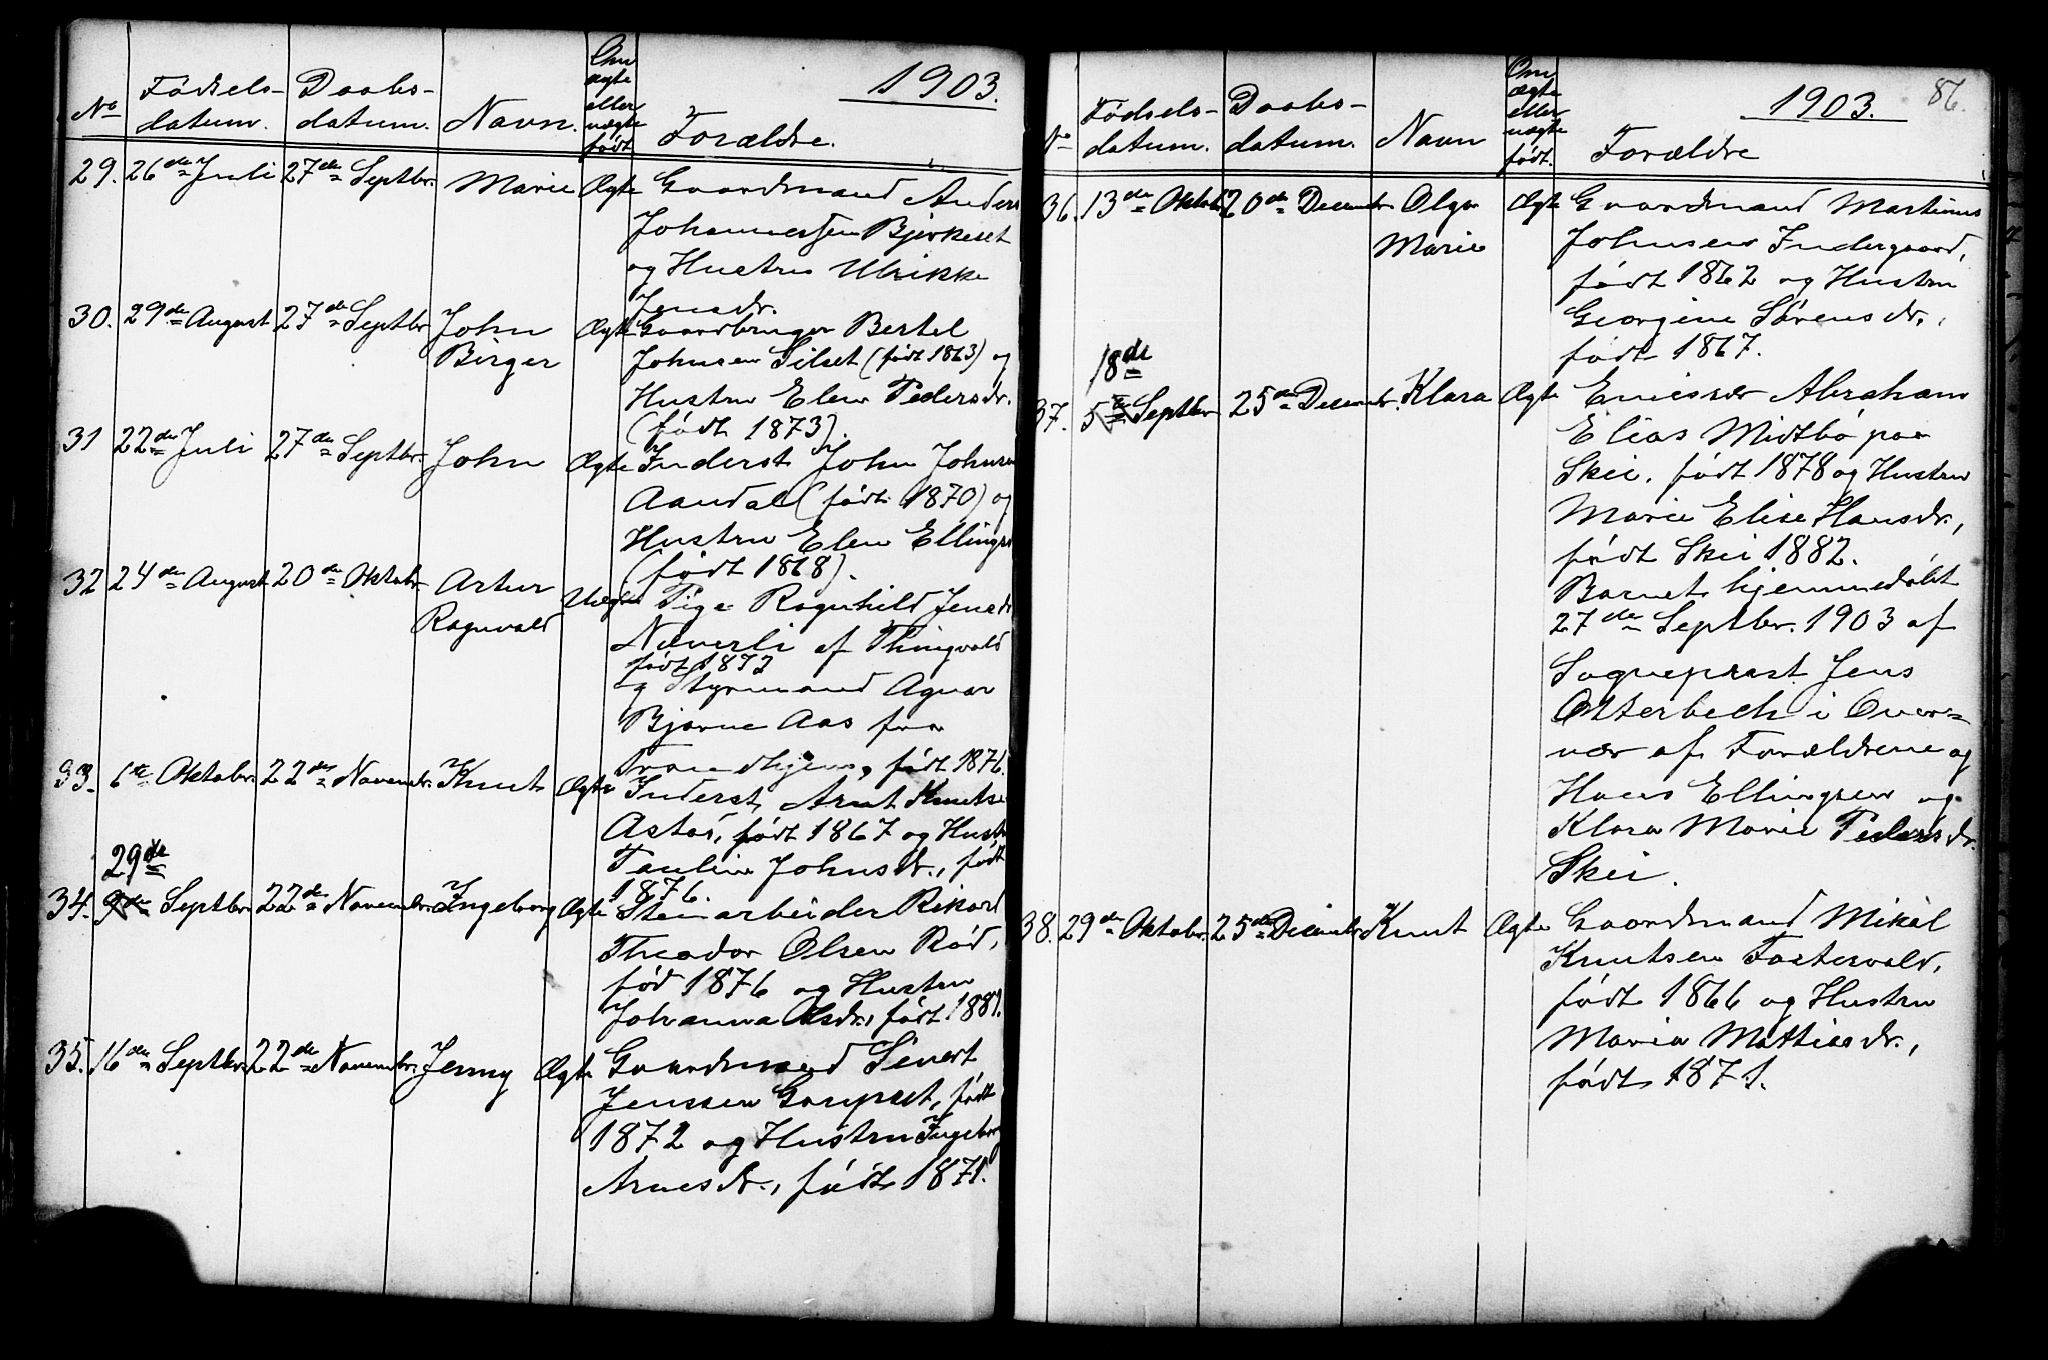 1903.
No Fødsels-datum. Daabs-datum. Navn. Om ægte eller uægte født Forældre.
29. 26de Juli 27de Septbr. Marie Ægte Gaardmand Anders
Johannessen Bjerkeset
og Hustru Ulrikke
Jensdr.
30. 29de August 27de Septbr. John Ægte Gaardbruger Bertel
Birger Johnsen Silset (født 1863) og
Hustru Elen Pedersdr.
(født 1873).
31 22de Juli 27de Septbr. John Ægte Inderst John Johnsen
Aandal (født 1870) og
Hustru Elen Ellingsdr
(født 1868).
32 24de August 20de Oktobr. Artur Uægte Pige Ragnhild Jensdr
Ragnvald Næverli af Thingvold
født 1872
og Styrmand Agnar
Bjarne Aas fra
Trondhjem, født 1876.
33. 6te Oktobr. 22de Novembr. Knut Ægte Inderst Arnt Knutsen
Astad, født 1867 og Hustru
Pauline Johnsdr., født
1876.
29de
34. 9de Septbr 22de Novembr. Ingeborg Ægte Stenarbeider Rikard
Theodor Olsen Rød,
fød 1876 og Hustru
Johanna Olsdr., født 1881.
35. 16de Septbr. 22de Novembr. Jenny Ægte Gaardmand Sivert
Jenssen Gaupset, født
1872 og Hustru Ingeborg
Arnesdr., født 1871.
1903. 86.
No Fødsels-datum. Daabs-datum. Navn Om ægte eller uægte født. Forældre
36. 13de Oktobr 20de Decembr. Olga Ægte Gaardmand Martinus
Marie Johnsen Indergaard,
født 1862 og Hustru
Georgine Sørensdr.,
født 1867.
18de
37. 5te Septbr 25de Decembr. Klara Ægte Emissær Abraham
Elias Midtbø paa
Skei, født 1878 og Hustru
Marie Elise Hansdr.,
født Skei 1882.
Barnet hjemmedøbt
27de Septbr. 1903 af
Sogneprest Jens
Otterbech i Over-
vær af Forældrene og
Hans Ellingsen og
Klara Marie Pedersdr.
Skei.
38. 29de Oktobr. 25de Decembr Knut Ægte Gaardmand Mikal
Knutsen Fostervold,
født 1866 og Hustru
Maria Mattiasdr.,
født 1871.